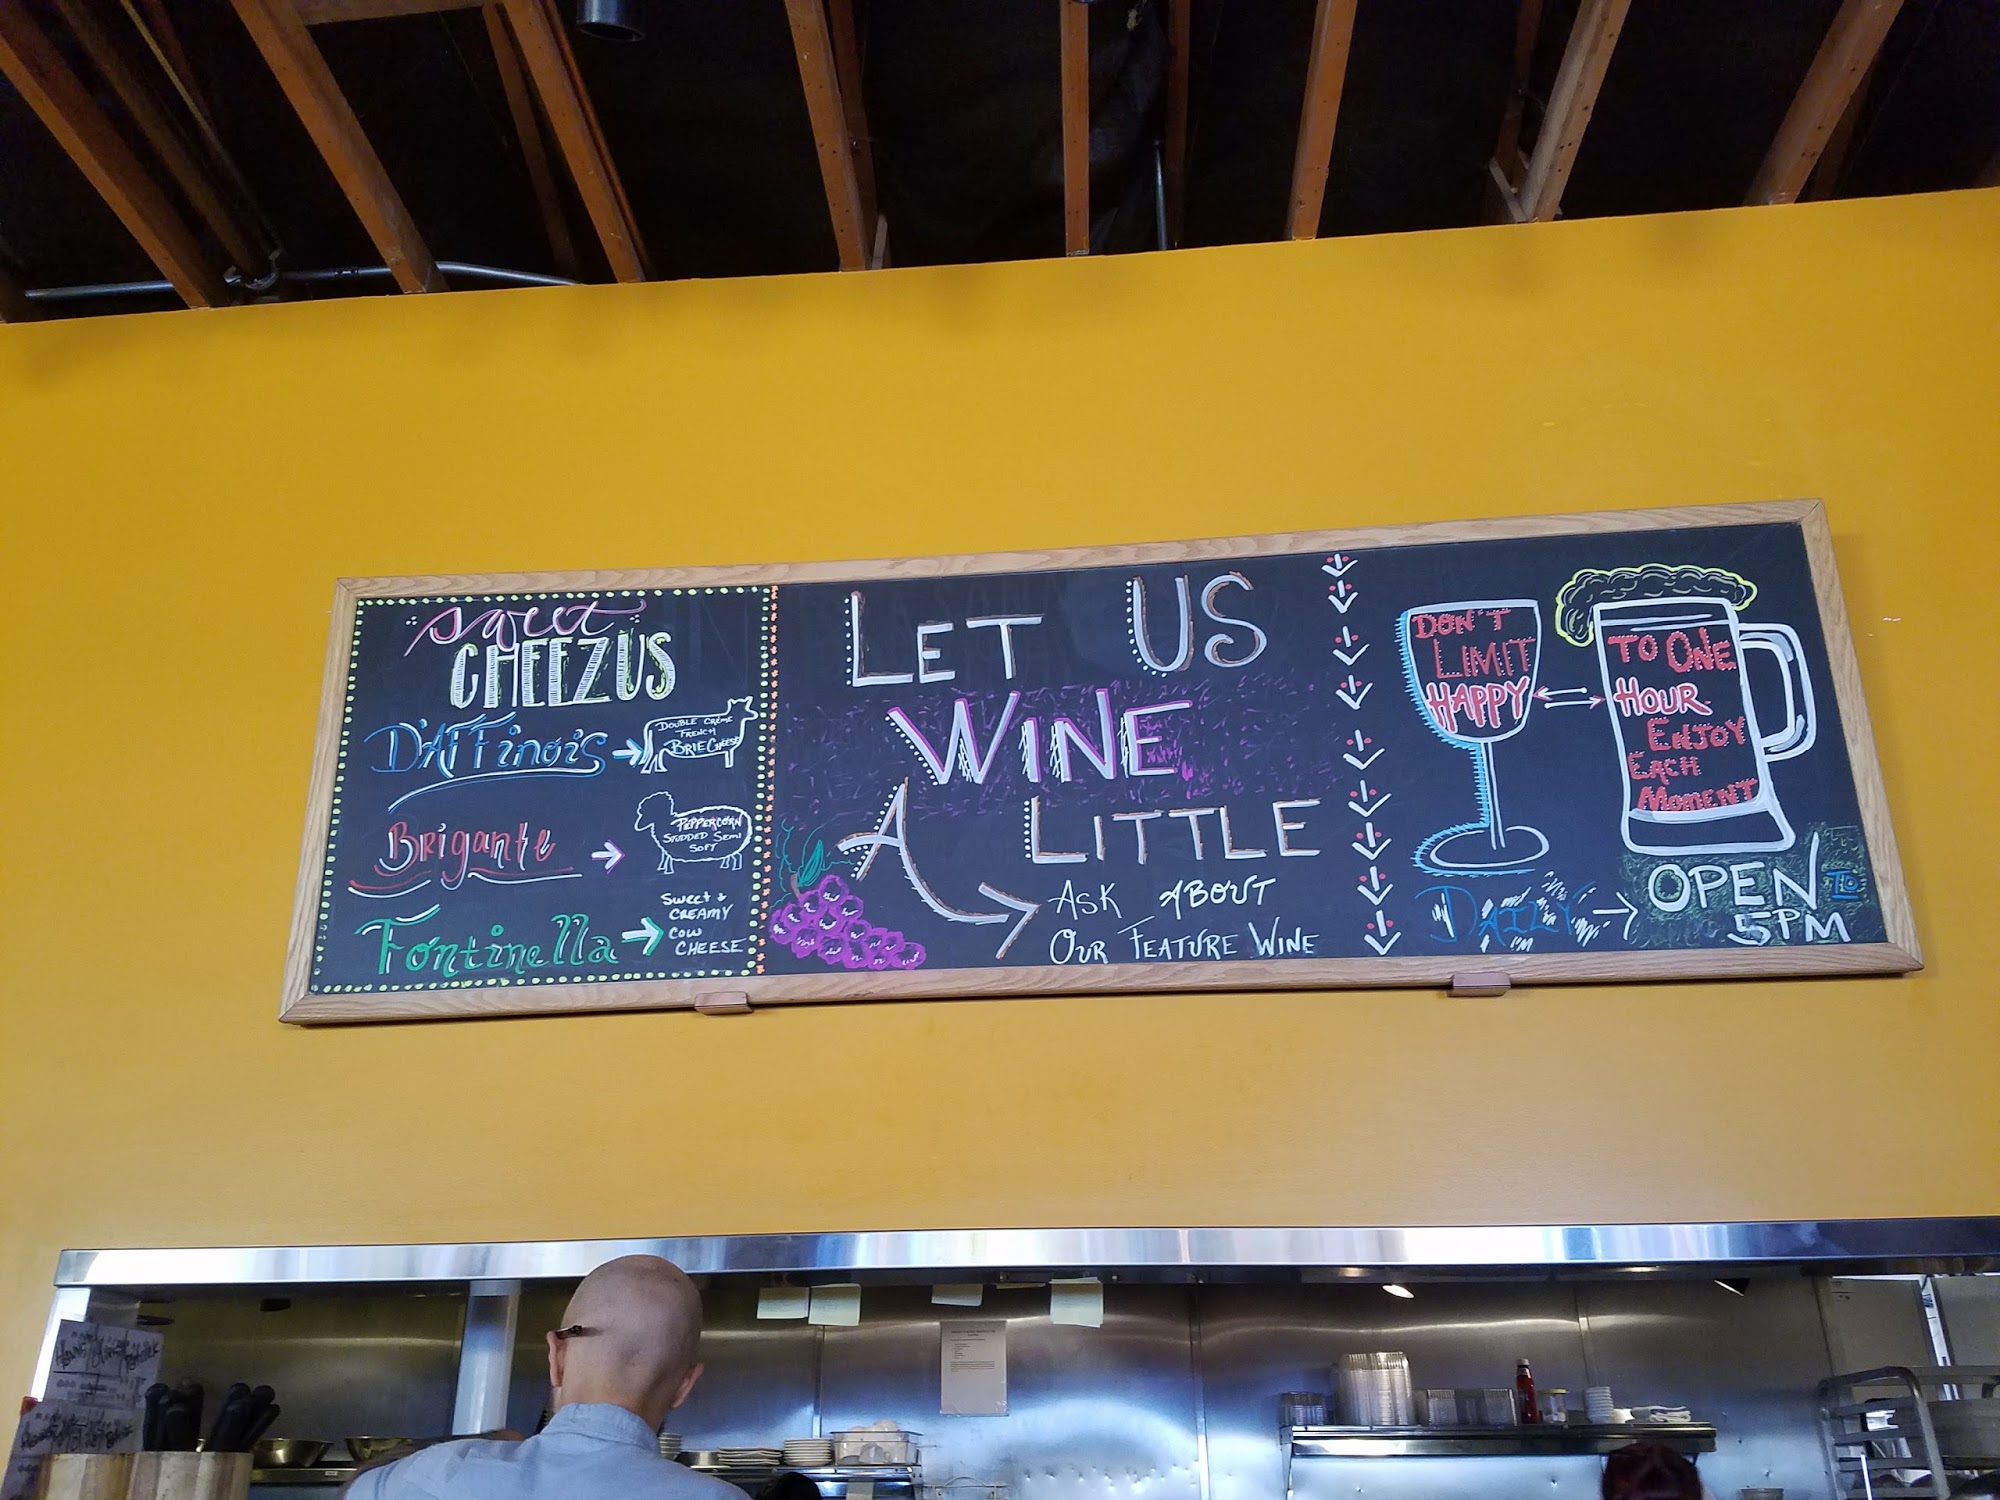 Sweet
CHEEZUS
D'AFFinois
DOUBLE CRÈME
FRENCH
BRIE CHEESE
Brigante
PEPPERCORN
STUDDED SEMI
SOFT
Fontinella
SWEET &
CREAMY
COW
CHEESE
LET US
WINE
A LITTLE
ASK ABOUT
OUR FEATURE WINE
DON'T
LIMIT
HAPPY
TO ONE
HOUR
ENJOY
EACH
MOMENT
DAILY
OPEN TO
5PM